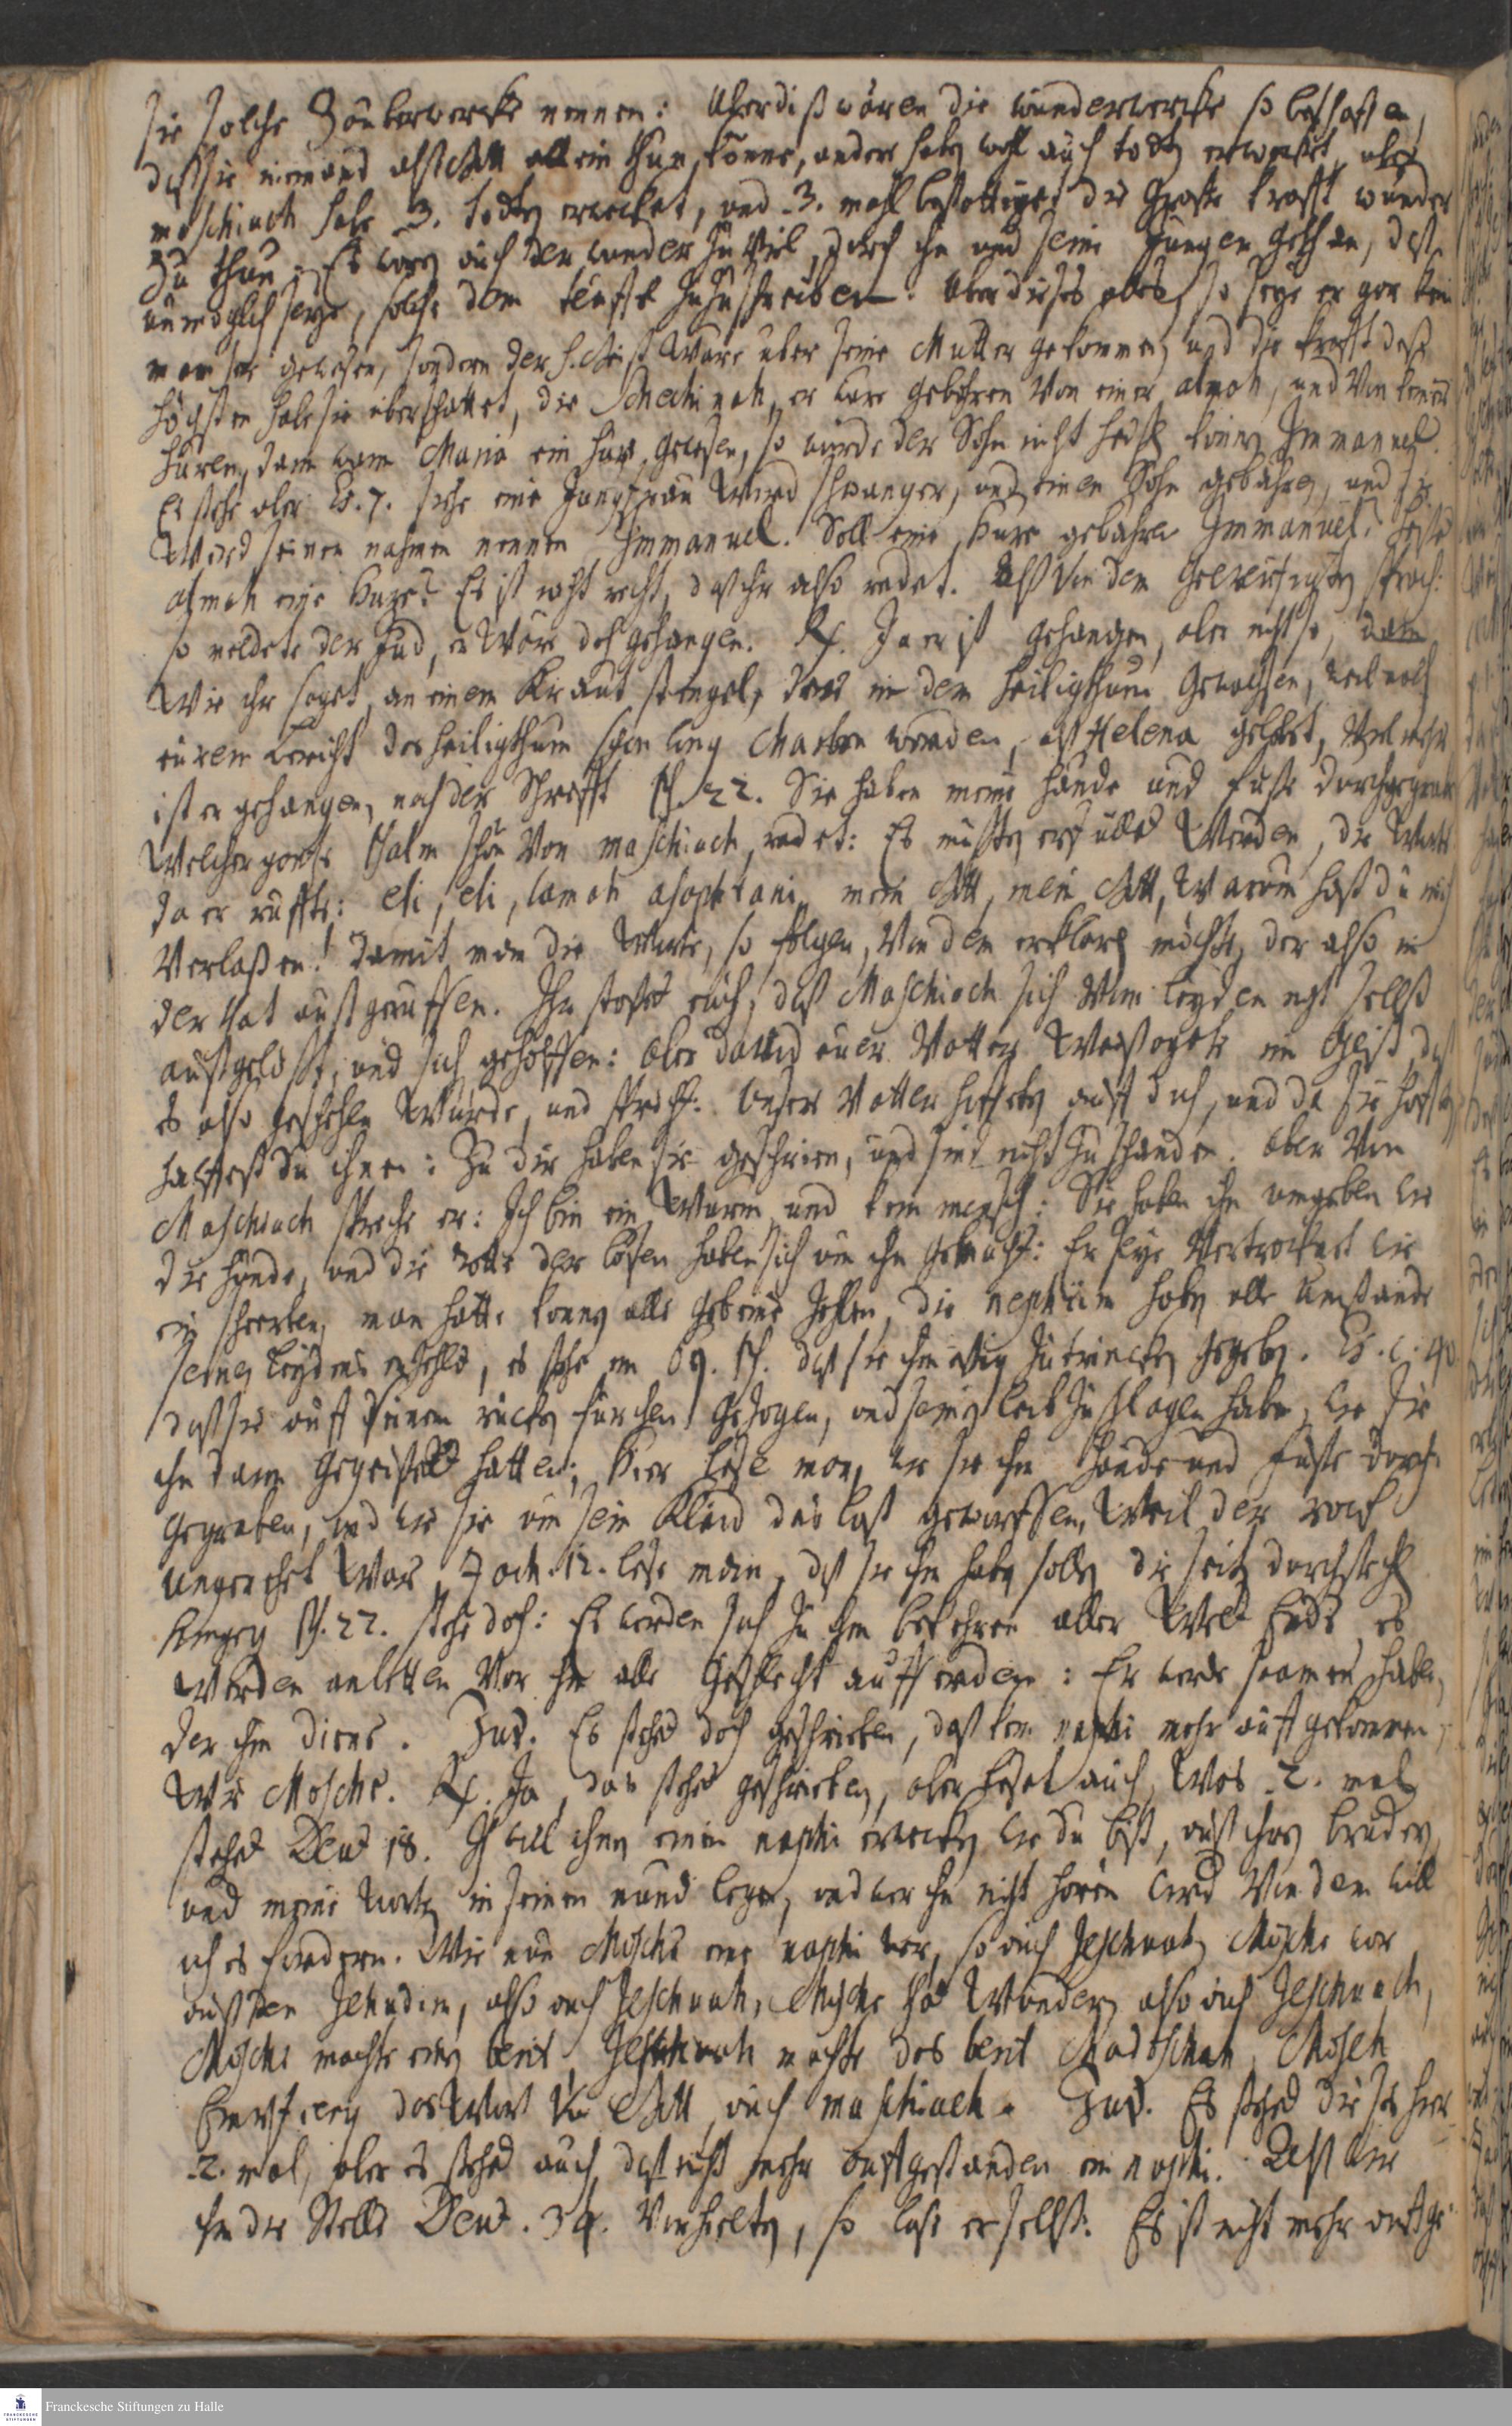 sie solche Zauberwercke nennen: Uberdiß wären die wunderwercke so beschaffen,
daß sie niemand alß Gott allein thun könne, andere haben wohl auch todte erwecket, aber
maschiach habe 3. todte erwecket, und 3. mahl bestättiget die Große krafft wunder
zu thun: Es wären auch der wunder zu viel, durch ihn und seine Jünger gethan, daß
unmöglich seye, solche dem teuffel zuzuschreiben. Uber dieses alles, so seye er gar kein
mamser gewesen, sondern der H. Geist ware uber seine Mutter gekommen, und die krafft deß
höchsten habe sie überschattet, die Schechinah, er ware gebohren Von einer almah, und Von keiner
huren, dann wann Maria ein hur gewesen, so würde der Sohn nicht heissen können Immanuel.
Es stehe aber Es. 7. siehe eine Jungfrau Wird schwanger, und einen Sohn gebähren, und sie
Wird seinen nahmen nennen Immanuel. Soll eine hure gebähren Immanuel? heist
almah eine hure? Es ist nicht recht, daß ihr also redet. Alß Von dem Gekreutzigten sprach:
so meldete der Jud, er wäre doch gehangen. Rs. Ja er ist gehangen, aber nicht so,
Wie ihr saget, an einem Kraut stengel, der in dem Heiligthum Gewachsen, weil nach
eurem bericht das heiligthum schon lang Charben worden, alß Helena gelebt, Vielmehr
ist er gehangen, nach der Schrifft Ps. 22. Sie haben meine hände und füße durchgegraben
Welcher gantze Psalm schon Von maschiach redet: Es müsten erfüllet Werden, die Worte
da er ruffte: eli, eli, lamah asaphtani, mein Gott, mein Gott, Warum hast du mich
Verlaßen! damit man die Worte, so folgen, Von dem erklären möchte, der also in
der that außgeruffen. Ihr stoßet euch, daß Maschiach sich Vom leyden nicht selbst
außgelößt, und sich geholffen: aber David euer Vatter Weissagete im Geist, daß
es also geschehen Würde, und spricht: Unsere Vätter hoffeten auff dich, und da sie hofften
halffest du ihnen: Zu dir haben sie geschrien, und sind nicht zu schanden. Aber Von
Maschiach spreche er: Ich bin ein Wurm und kein mensch: Sie haben ihn umgeben wie
die hunde, und die rotte der bösen haben sich um ihn gemacht: Er seye Vertrocknet wie
ein scherben, man hätte können alle Gebeine zehlen, die nephiim haben alle umstände
seines leydens erzehlt, es stehe im 69. Ps. daß sie ihm eßig zu trincken gegeben. Es. c. 50.
daß sie auff seinem rücken furchen gezogen, und seinen leib zuschlagen habe, wie sie
ihn dann Gegeißelt hatten; hier lese man, wie sie ihm hände und füße durch
gegraben, und wie sie um sein Kleid das loß geworffen, Weil der rock
ungenehet War, Zach. 12. lese man, daß sie ihm haben sollen die seite durchstechen
hingegen Ps. 22. stehe doch: Es werden sich zu ihm bekehren aller Welt Ende, es
Werden anbetten Vor ihm alle Geschlecht auff erden: Er werde saamen haben,
der ihm diene. Jud. Es stehet doch geschrieben, daß kein naphi mehr auffgekommen,
Wie Mosche. Rs. Ja, das stehet geschrieben, aber leset auch, Was 2. mal
stehet Deut 18. Ich will ihnen einen naphi erwecken wie du bist, auß ihren brüdern,
und meine worte in seinen mund legen, und wer ihn nicht hören wird Von dem will
ich es fordern. Wie nun Mosche eine naphi war, so auch Jeschuah, Mosche war
auß den Jehudim, also auch Jeschuah, Mosche that Wunder, also auch Jeschuach,
Mosche machte einen berit, Jeschuah machte das berit Chadoschah, Moscheh
Empfieng das Wort Von Gott, auch maschiach. Jud. Es stehet dieses hier
2. mal, aber es stehet auch, daß nicht mehr auffgestanden ein naphi. Alß wir
ihm die Stelle Deut. 34. Vorhielten, so lase er selbst: Es ist nicht mehr auffge-
Franckesche Stiftungen zu Halle